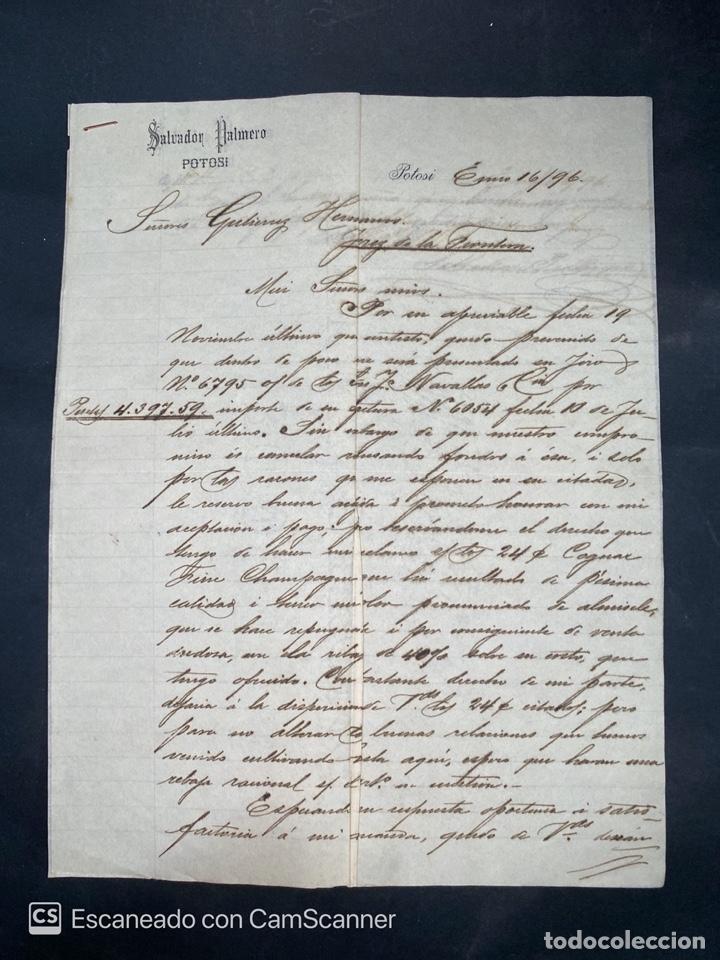 Salvador Palmero
POTOSI
Potosi Enero 16/96.
Señores Gutierrez Hermanos.
Jerez de la Frontera.
Muy Señores mios.
Por su apreciable fecha 19
Noviembre último que contesto, quedo prevenido de
que dentro de poco me será presentado su Jiro
Nº 6795 de los S. Navallas Cia por
4.397.59. importe de su factura Nº 6054 fecha 10 de Ju-
lio último. Sin embargo de que nuestro compro-
miso es cancelar remesando fondos á ésa, i solo
por las razones que me exponen en su citada,
le reservo buena acojida i prometo honrar con mi
aceptacion i pago; reservandome el derecho que
tengo de hacer un reclamo los 24 Cognac
Fine Champagne que ha resultado de pésima
calidad i tener un olor pronunciado de almiscle,
que se hace repugnante i por consiguiente de venta
dudosa, con la rebaja de 40% sobre su costo, que
tengo ofrecido. Con bastante derecho de mi parte,
dejaria á la disposicion de Vdes los 24 citados; pero
para no alterar las buenas relaciones que hemos
venido cultivando hasta aquí, espero que haran una
rebaja racional
Esperando su respuesta oportuna i satis-
factoria á mi demanda, quedo de Vdes
CS Escaneado con CamScanner
todocoleccion